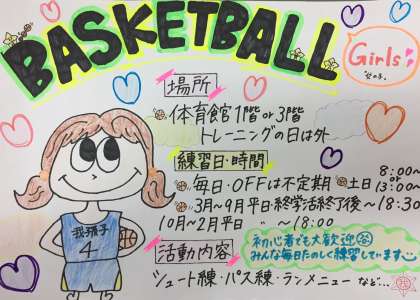 BASKETBALL
Girls
女の子。
場所
体育館1階or3階
トレーニングの日は外
練習日・時間
毎日・OFFは不定期 土日 8:00〜 or 13:00〜
3月〜9月平日終学活終了後〜18:30
10月〜2月平日 〃 〜18:00
活動内容
シュート練・パス練・ランメニュー など…
初心者でも大歓迎
みんな毎日たのしく練習しています
我孫子
4